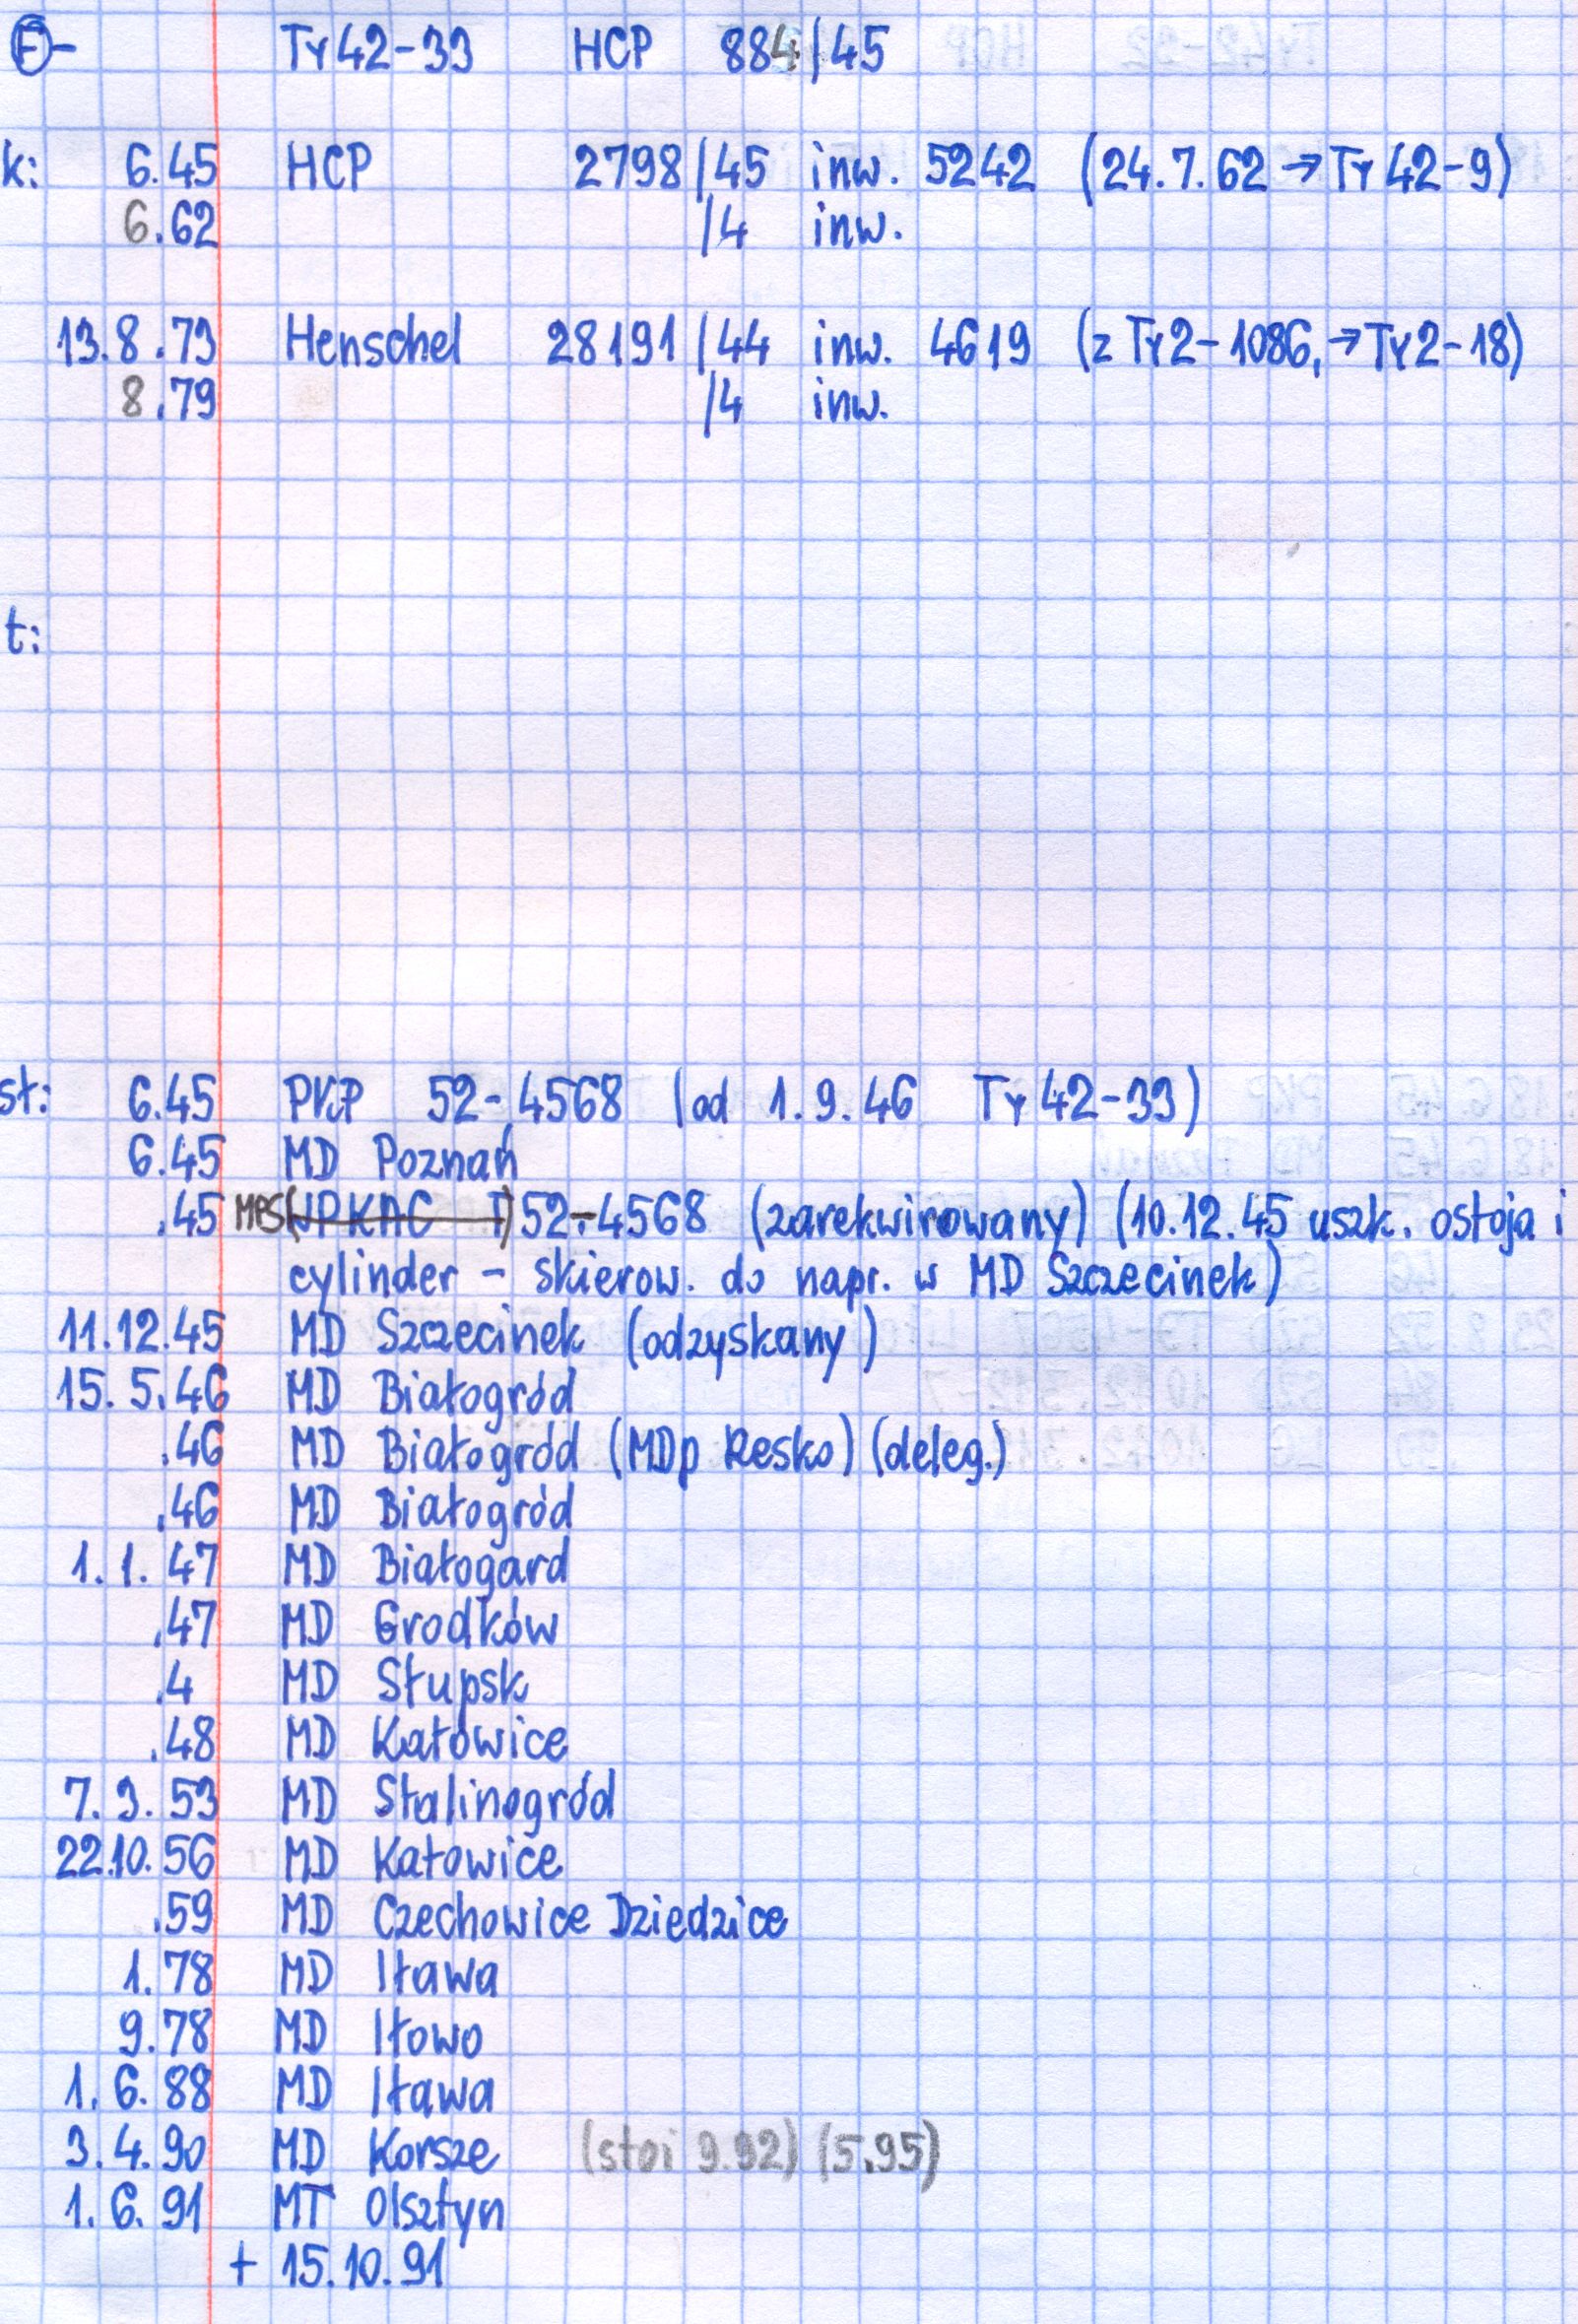 F- Ty42-33 HCP 884/45
k: 6.45 HCP 2798/45 inw. 5242 (24.7.62 → Ty42-9)
6.62 /4 inw.
13.8.73 Henschel 28191/44 inw. 4619 (z Ty2-1086, → Ty2-18)
8.79 /4 inw.
t:
st: 6.45 PKP 52-4568 (od 1.9.46 Ty42-33)
6.45 MD Poznań
.45 MPS 52-4568 (zarekwirowany) (10.12.45 uszk. ostoja i
cylinder - skierow. do napr. w MD Szczecinek)
11.12.45 MD Szczecinek (odzyskany)
15.5.46 MD Białogród
.46 MD Białogród (MDp Resko) (deleg.)
.46 MD Białogród
1.1.47 MD Białogard
.47 MD Grodków
.4 MD Słupsk
.48 MD Katowice
7.3.53 MD Stalinogród
22.10.56 MD Katowice
.59 MD Czechowice Dziedzice
1.78 MD Iława
9.78 MD Iłowo
1.6.88 MD Iława
3.4.90 MD Korsze (stoi 9.92) (5.95)
1.6.91 MT Olsztyn
+ 15.10.91